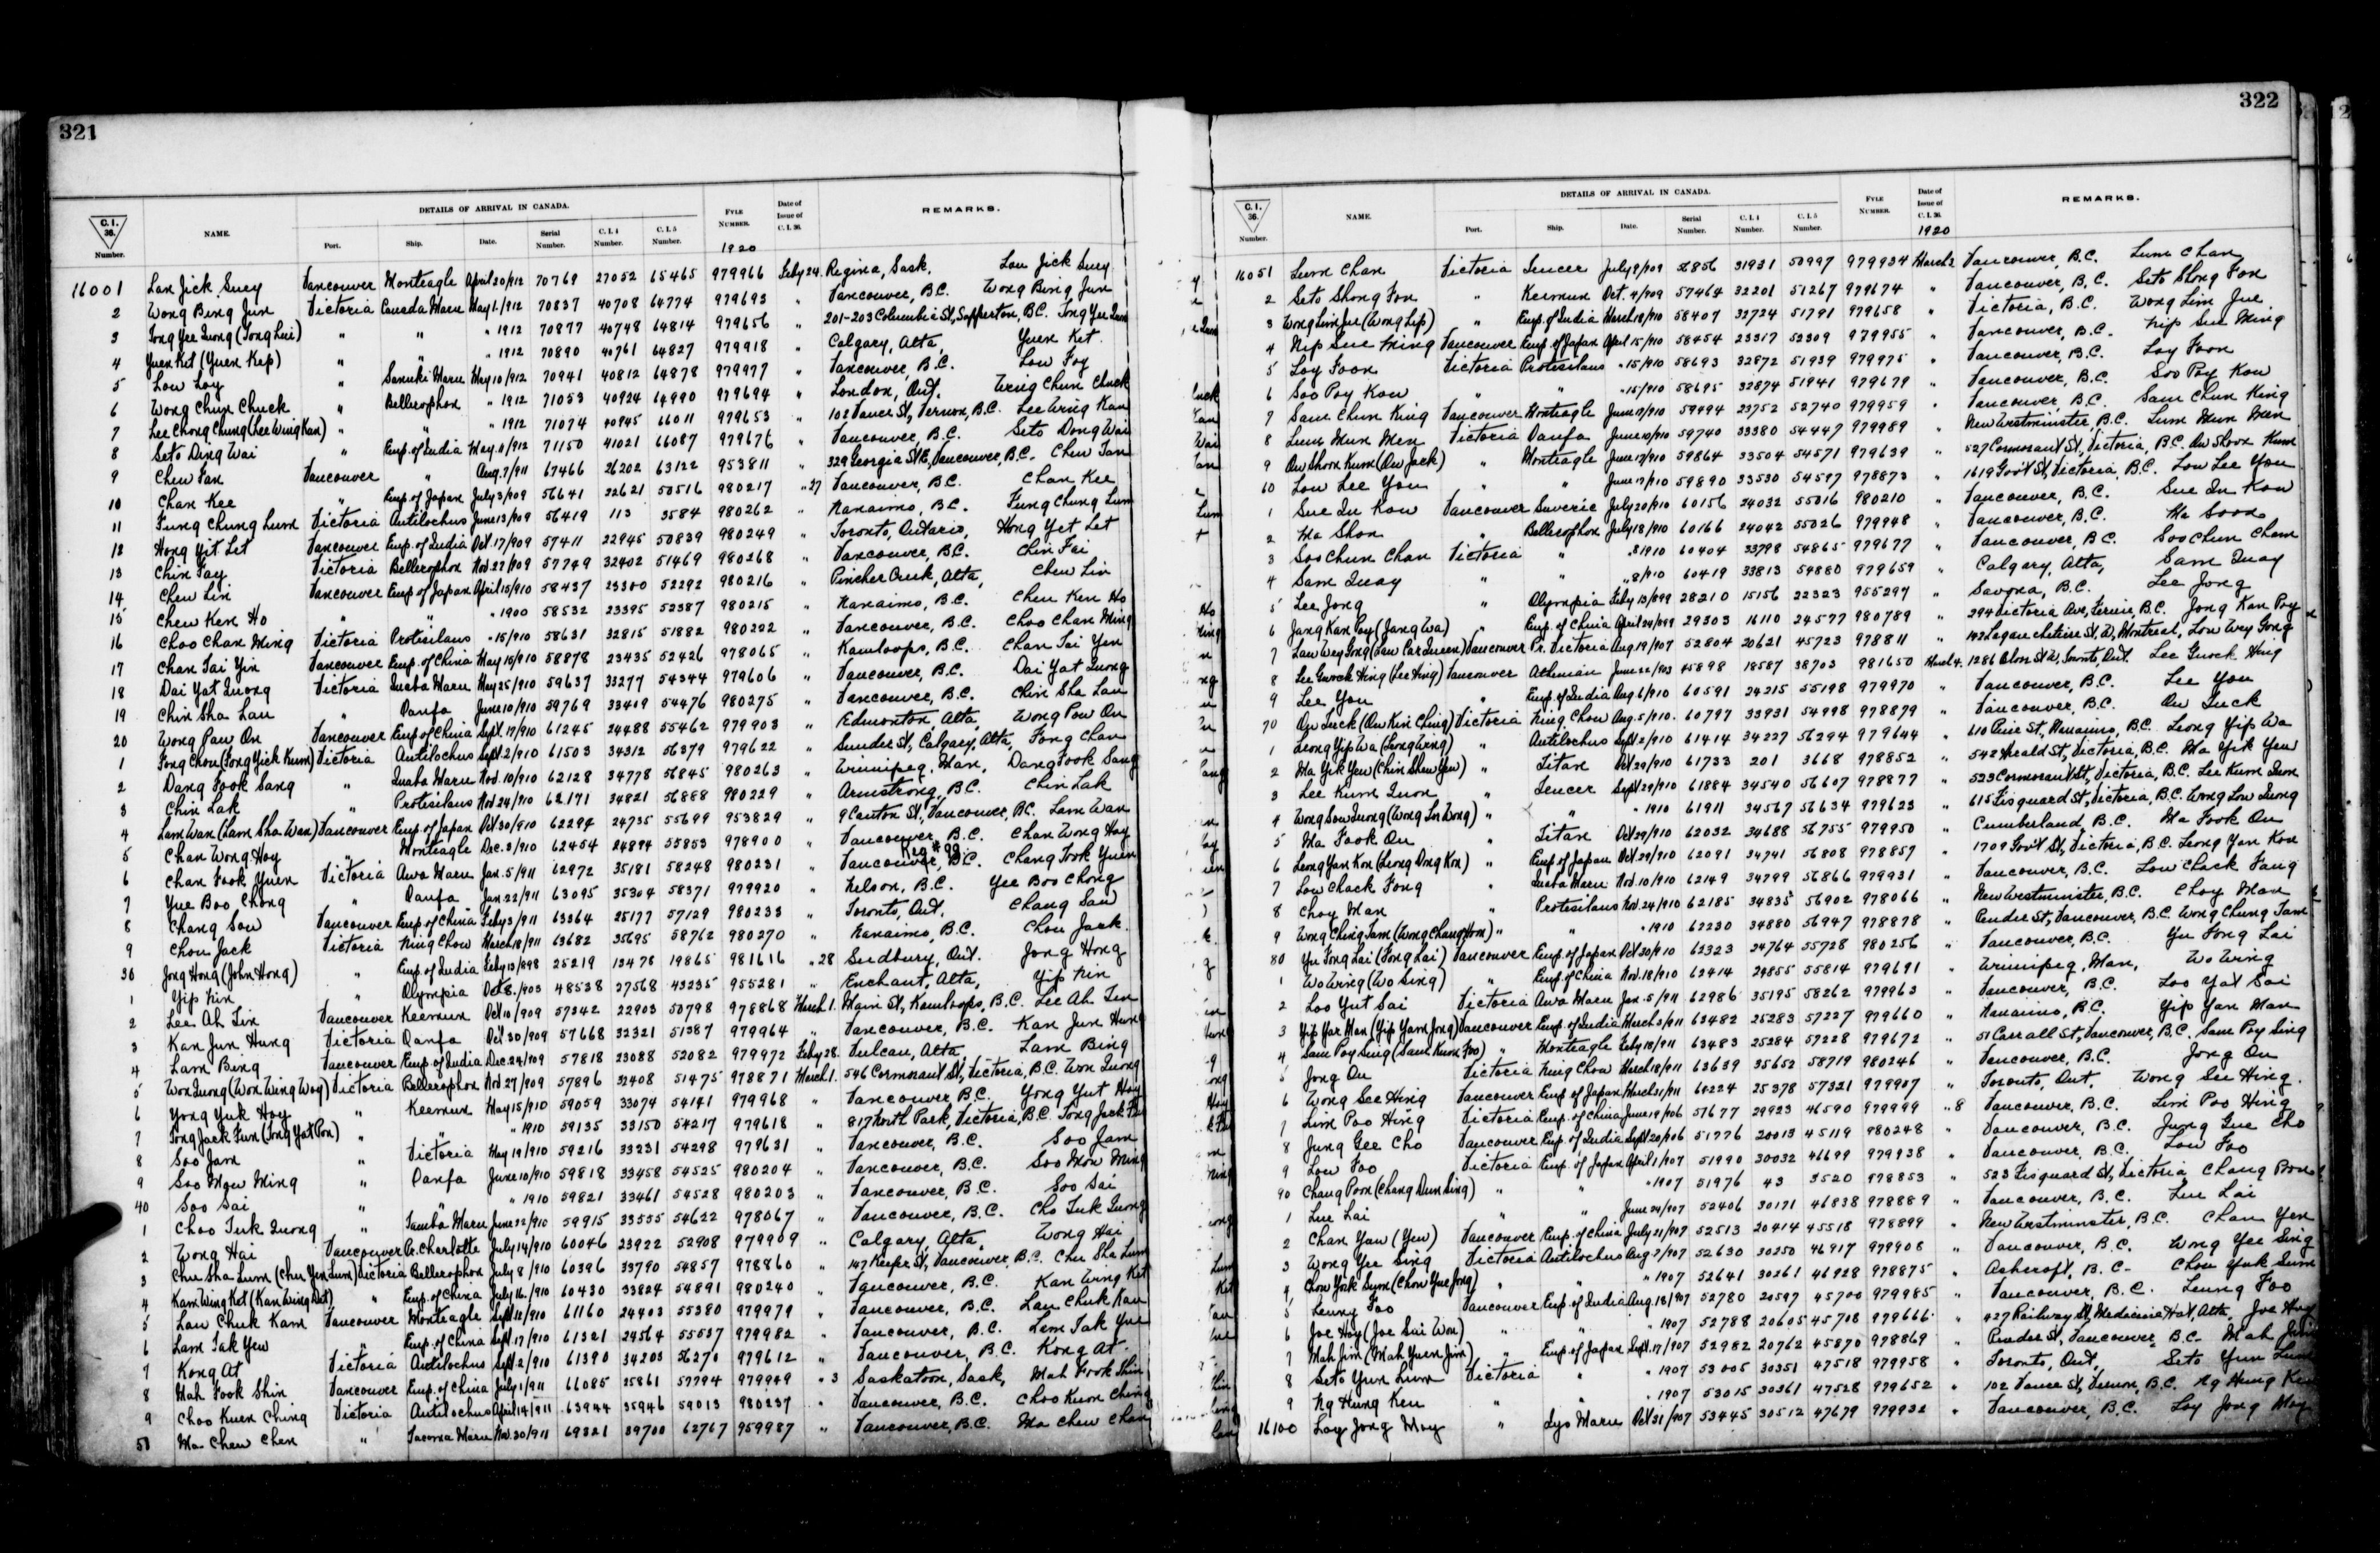 321
C.I. 36. Number.
NAME.
DETAILS OF ARRIVAL IN CANADA.
Port. Ship. Date. Serial Number. C.I. 4 Number. C.I. 5 Number.
FYLE NUMBER.
Date of Issue of C.I. 36.
REMARKS.
1920
16001 Lan Jick Suey Vancouver Monteagle April 20/912 70769 27052 65465 979966 Feby 24. Regina, Sask. Lou Jick Suey
2 Wong Bing Jun Victoria Canada Maru May 1/912 70837 40708 64774 979693 " Vancouver, B.C. Wong Bing Jun
3 " " " 1912 70877 40748 64814 979656 " 201-203 Columbia St, Sapperton, B.C.
4 Yuen Ket (Yuen Kep) " " " 1912 70890 40761 64827 979918 " Calgary, Alta Yuen Ket
5 Low Loy " Sanuki Maru May 10/912 70941 40812 64878 979977 " Vancouver, B.C. Low Foy
6 Wong Chun Chuck " Bellerophon " 1912 71053 40924 64990 979694 " London, Ont. Wong Chun Chuck
7 Lee Chong Chung (Lee Wing Kan) " " " 1912 71074 40945 66011 979653 " 102 Vance St, Vernon, B.C. Lee Wing Kan
8 Seto Ding Wai " Emp. of India 71150 41021 66087 979676 " Vancouver, B.C. Seto Dong Wai
9 Chew Fan Vancouver " Aug. 7/911 67466 26202 63122 953811 " 329 Georgia St E, Vancouver, B.C. Chew Fan
10 Chan Kee " Emp. of Japan July 3/909 56641 22621 50516 980217 " 27 Vancouver, B.C. Chan Kee
11 Fung Chung Lum Victoria Antilochus June 13/909 56419 113 3584 980262 " Nanaimo, B.C. Fung Chung Lum
12 Hong Yit Let Vancouver Emp. of India Oct. 17/909 57411 22945 50839 980249 " Toronto, Ontario, Hong Yet Let
13 Chin Fay Victoria Bellerophon Nov. 27/909 57749 32402 51469 980268 " Vancouver, B.C. Chin Fai
14 Chew Lin Vancouver Emp. of Japan April 15/910 58437 23300 52292 980216 " Pincher Creek, Alta, Chew Lin
15 Chew Ken Ho " " " 1900 58532 23395 52387 980215 " Nanaimo, B.C. Chew Ken Ho
16 Choo Chan Ming Victoria Protisilaus " 15/910 58631 32815 51882 980202 " Vancouver, B.C. Choo Chan Ming
17 Chan Tai Yin Vancouver Emp. of China May 10/910 58878 23435 52426 978065 " Kamloops, B.C. Chan Tai Yen
18 Dai Yat Quong Victoria Inaba Maru May 25/910 59637 33277 54344 979606 " Vancouver, B.C. Dai Yat Quong
19 Chin Sha Lau " Oanfa June 10/910 59769 33409 54476 980275 " Vancouver, B.C. Chin Sha Lau
20 Wong Paw On Vancouver Emp of China Sept. 17/910 61245 24488 55462 979903 " Edmonton, Alta, Wong Pow On
1 Fong Chou (Fong Yick Kum) Victoria Antilochus Sept. 2/910 61503 34312 56379 979622 " Calgary, Alta, Fong Chou
2 Dang Fook Sang " Inaba Maru Nov. 10/910 62128 34778 56845 980263 " Winnipeg, Man, Dang Fook Sang
3 Chin Lak " Protisilaus Nov 24/910 62171 34821 56888 980229 " Armstrong, B.C. Chin Lak
4 Lam Wan (Lam Sha Wan) Vancouver Emp. of Japan Oct 30/910 62294 24735 55699 953829 " 9 Canton St, Vancouver, B.C. Lam Wan
5 Chan Wong Hoy " Monteagle Dec. 2/910 62454 24894 55853 978900 " Vancouver, B.C. Chan Wong Hoy
6 Chan Fook Yuen Victoria Awa Maru Jan. 5/911 62972 35181 58248 980231 " Vancouver, B.C. Chang Fook Yuen
7 Yue Boo Chong " Oanfa Jan. 22/911 63095 35304 58371 979920 " Nelson, B.C. Yee Boo Chong
8 Chang Sow Vancouver Emp of China Feby 3/911 63364 25177 57129 980233 " Toronto, Ont. Chang Saw
9 Chou Jack Victoria Ning Chow March 18/911 63682 35695 58762 980270 " Nanaimo, B.C. Chou Jack
30 Jong Hong (John Hong) " Emp. of India Feby 13/898 25219 13478 19865 981616 " 28 Sudbury, Ont. Jong Hong
1 Yip Nin " Olympia Oct 8/903 48528 27568 43235 955281 " Enchant, Alta, Yip Nin
2 Lee Ah Tin Vancouver Keemun Oct 10/909 57342 22903 50798 978868 March 1. Main St, Kamloops, B.C. Lee Ah Tin
3 Kan Jun Hung Victoria Oanfa Oct 30/909 57668 32321 51387 979964 " Vancouver, B.C. Kan Jun Hung
4 Lam Bing Vancouver Emp of India Dec. 24/909 57818 23088 52082 979972 Feby 28. Vulcan, Alta, Lam Bing
5 Won Quong (Won Wing Woy) Victoria Bellerophon Nov 27/909 57896 32408 51475 978871 March 1. 546 Cormorant St, Victoria, B.C. Won Quong
6 Yong Yuk Hoy " Keemun May 15/910 59059 33074 54141 979968 " Vancouver B.C. Yong Yut Hoy
7 Tong Jack Fun (Tong Yat Pon) " " " 1910 59135 33150 54217 979618 " 817 North Park, Victoria, B.C.
8 Soo Jam " Victoria May 19/910 59216 33231 54298 979631 " Vancouver, B.C. Soo Jam
9 Soo Mow Ming " Oanfa June 10/910 59818 33458 54525 980204 " Vancouver, B.C. Soo Mow Ming
40 Soo Sai " " " 1910 59821 33461 54528 980203 " Vancouver, B.C. Soo Sai
1 Choo Tuk Quong " Tamba Maru June 22/910 59915 33555 54622 978067 " Vancouver, B.C. Cho Tuk Quong
2 Wong Hai Vancouver Pr. Charlotte July 14/910 60046 23922 52908 979909 " Calgary, Alta, Wong Hai
3 Chu Sha Lum (Chu Yen Lum) Victoria Bellerophon July 8/910 60396 33790 54857 978860 " 147 Keefer St, Vancouver, B.C. Chu Sha Lum
4 Kam Wing Ket " Emp. of China July 16/910 60430 33824 54891 980240 " Vancouver, B.C. Kan Wing Ket
5 Lau Chuk Kam Vancouver Monteagle 61160 24403 55380 979979 " Vancouver, B.C. Lau Chuk Kan
6 Lam Tak Yew " Emp. of China Sept. 17/910 61321 24564 55537 979982 " Vancouver, B.C. Lam Tak Yue
7 Kong At Victoria Antilochus Sept. 2/910 61390 34203 56270 979612 " Vancouver, B.C. Kong At
8 Mah Fook Shin Vancouver Emp. of China July 1/911 66085 25861 57794 979949 " 3 Saskatoon, Sask, Mah Fook Shin
9 Choo Kuen Ching Victoria Antilochus April 14/911 63944 35946 59013 980237 " Vancouver, B.C. Choo Kuon Ching
50 Ma Chew Chen " Tacoma Maru Nov. 30/911 69321 39700 62767 959987 " Vancouver, B.C. Ma Chew Chan
322
C.I. 36. Number.
NAME.
DETAILS OF ARRIVAL IN CANADA.
Port. Ship. Date. Serial Number. C.I. 4 Number. C.I. 5 Number.
FYLE NUMBER.
Date of Issue of C.I. 36.
REMARKS.
1920
16051 Lum Chan Victoria Teucer July 9/909 56856 31931 50997 979934 March 2 Vancouver, B.C. Lum Chan
2 Seto Shong Fon " Keemun Oct. 4/909 57464 32201 51267 979674 " Vancouver, B.C. Seto Shong Fon
3 Wong Lim Jue (Wong Lip) " Emp. of India March 18/910 58407 32724 51791 979658 " Victoria, B.C. Wong Lim Jue
4 Nip Sue Ming Vancouver Emp of Japan April 15/910 58454 23317 52309 979955 " Vancouver, B.C. Nip Sue Ming
5 Loy Foon Victoria Protisilaus " 15/910 58693 32872 51939 979975 " Vancouver, B.C. Loy Foon
6 Soo Poy Kow " " " 15/910 58695 32874 51941 979679 " Vancouver, B.C. Soo Poy Kow
7 Sam Chun King Vancouver Monteagle June 17/910 59494 23752 52740 979959 " Vancouver, B.C. Sam Chun King
8 Lum Mun Men Victoria Oanfa June 10/910 59740 33380 54447 979989 " New Westminster, B.C. Lum Mun Men
9 Ow Shoon Kum (Ow Jack) " Monteagle June 17/910 59864 33504 54571 979639 " 527 Cormorant St, Victoria, B.C. Ow Shoon Kum
60 Low Lee You " " June 17/910 59890 33530 54597 978873 " 1619 Gov't St, Victoria, B.C. Low Lee You
1 Sue Du Kow Vancouver Suveric July 20/910 60156 24032 55016 980210 " Vancouver, B.C. Sue Du Kow
2 Ma Shon " Bellerophon July 18/910 60166 24042 55026 979948 " Vancouver, B.C. Ma Soon
3 Soo Chun Chan Victoria " " 8 1910 60404 33798 54865 979677 " Vancouver, B.C. Soo Chun Cham
4 Sam Quay " " " 8/910 60419 33813 54880 979659 " Calgary, Alta, Sam Quay
5 Lee Jong " Olympia Feby 13/899 28210 15156 22323 955297 " Savona, B.C. Lee Jong
6 Jang Kan Poy (Jang Wa) " Emp. of China April 24/899 29303 16110 24577 980789 " 294 Victoria Ave, Fernie, B.C. Jong Kan Poy
7 Vancouver Pr. Victoria Aug. 19/907 52804 20621 45723 978811 " Montreal, Low Wey Gong
8 Lee Gwock Hing (Lee Hing) Vancouver Athenian June 22/903 45898 18587 38703 981650 March 4. 1286 Bloor St W, Toronto, Ont. Lee Guock Hing
9 Lee You " Emp. of India Aug. 6/910 60591 24215 55198 979970 " Vancouver, B.C. Lee You
70 Ow Luck (Ow Kin Ching) Victoria Ning Chow Aug. 5/910 60797 33931 54998 978879 " Vancouver, B.C. Ow Luck
1 Leong Yip Wa (Leong Wing) " Antilochus Sept. 2/910 61414 34227 56294 979644 " 610 Pine St, Nanaimo, B.C. Leong Yip Wa
2 Ma Yik Yew (Chin Shew Yew) " Titan Oct 29/910 61733 201 3668 978852 " 542 Herald St, Victoria, B.C. Ma Yik Yew
3 Lee Kum Quon " Teucer Sept 29/910 61884 34540 56607 978877 " 523 Cormorant St, Victoria, B.C. Lee Kum Quon
4 " " " 1910 61911 34567 56634 979623 " 615 Fisguard St, Victoria, B.C. Wong Low Quong
5 Ma Fook On " Titan Oct 29/910 62032 34688 56755 979950 " Cumberland, B.C. Ma Fook On
6 Leong Yan Kon (Leong Dong Kon) " Emp. of Japan Oct. 29/910 62091 34741 56808 978857 " 1709 Gov't St, Victoria, B.C. Leong Yan Kon
7 Low Chock Fong " Inaba Maru Nov. 10/910 62149 34799 56866 979931 " Vancouver, B.C. Low Chack Fang
8 Choy Man " Protisilaus Nov. 24/910 62185 34835 56902 978066 " New Westminster, B.C. Choy Man
9 Wong Ching Tam (Wong Chang Hom) " " " 1910 62230 34880 56947 978878 " Pender St, Vancouver, B.C. Wong Chung Tam
80 Yu Fong Lai (Fong Lai) Vancouver Emp. of Japan Oct 30/910 62323 24764 55728 980256 " Vancouver, B.C. Yu Fong Lai
1 Wo Wing (Wo Sing) " Emp of China Nov. 18/910 62414 24855 55814 979691 " Winnipeg, Man, Wo Wing
2 Loo Yut Sai Victoria Awa Maru Jan. 5/911 62986 35195 58262 979963 " Vancouver, B.C. Loo Yat Sai
3 Yip Yar Man (Yip Yam Jong) Vancouver Emp. of India March 3/911 63482 25283 57227 979660 " Nanaimo, B.C. Yip Yan Man
4 Sam Poy Sing (Sam Kwon Foo) " Monteagle Feby 18/911 63483 25284 57228 979672 " 51 Carrall St, Vancouver, B.C. Sam Poy Sing
5 Jong On Victoria Ning Chow March 18/911 63639 35652 58719 980246 " Vancouver, B.C. Jong On
6 Wong See Hing Vancouver Emp of Japan March 31/911 60224 25378 57321 979907 " Toronto, Ont, Wong See Hing
7 Lim Poo Hing Victoria Emp. of China June 19/906 51677 29923 46590 979999 " 8 Vancouver, B.C. Lim Poo Hing
8 Jung Gee Cho Vancouver Emp. of India Sept 20/906 51776 20013 45119 980248 " Vancouver, B.C. Jung Gue Cho
9 Low Foo Victoria Emp. of Japan April 1/907 51990 30032 46699 979938 " Vancouver, B.C. Low Foo
90 Chang Poon (Chang Dun Sing) " " " 1907 51976 43 3520 978853 " 523 Fisguard St, Victoria Chang Poon
1 Lue Lai " " June 24/907 52406 30171 46838 978889 " Vancouver, B.C. Lue Lai
2 Chan Yaw (Yew) Vancouver Emp. of China July 21/907 52513 20414 45518 978899 " New Westminster, B.C. Chan Yew
3 Wong Yee Sing Victoria Antilochus Aug 2/907 52630 30250 46917 979908 " Vancouver, B.C. Wong Yee Sing
4 Chow Yuk Sum (Chow Yue Jong) " " " 1907 52641 30261 46928 978875 " Ashcroft, B.C. Chow Yuk Sum
5 Leung Foo Vancouver Emp. of India Aug. 18/907 52780 20597 45700 979985 " Vancouver, B.C. Leung Foo
6 Joe Hoy (Joe Sai Won) " " " 1907 52788 20605 45708 979666 " 427 Railway St, Medicine Hat, Alta, Joe Hoy
7 Mah Jim (Mah Yuen Jim) " Emp of Japan Sept. 17/907 52982 20762 45870 978869 " Pender St, Vancouver B.C. Mah Jim
8 Seto Yun Lum Victoria " " 1907 53005 30351 47518 979958 " Toronto, Ont, Seto Yun Lum
9 Ng Hung Ken " " " 1907 53015 30361 47528 979652 " 102 Vance St, Vernon, B.C. Ng Hung Ken
16100 Loy Jong Moy " Iyo Maru Oct 31/907 53445 30512 47679 979932 " Vancouver, B.C. Loy Jong Moy